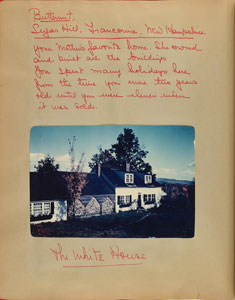 Butternut,
Sugar Hill, Franconia, New Hampshire
your Mother's favorite home. She owned
and built all the buildings
You spent many holidays here
from the time you were three years
old until you were eleven when
it was sold.
The White House